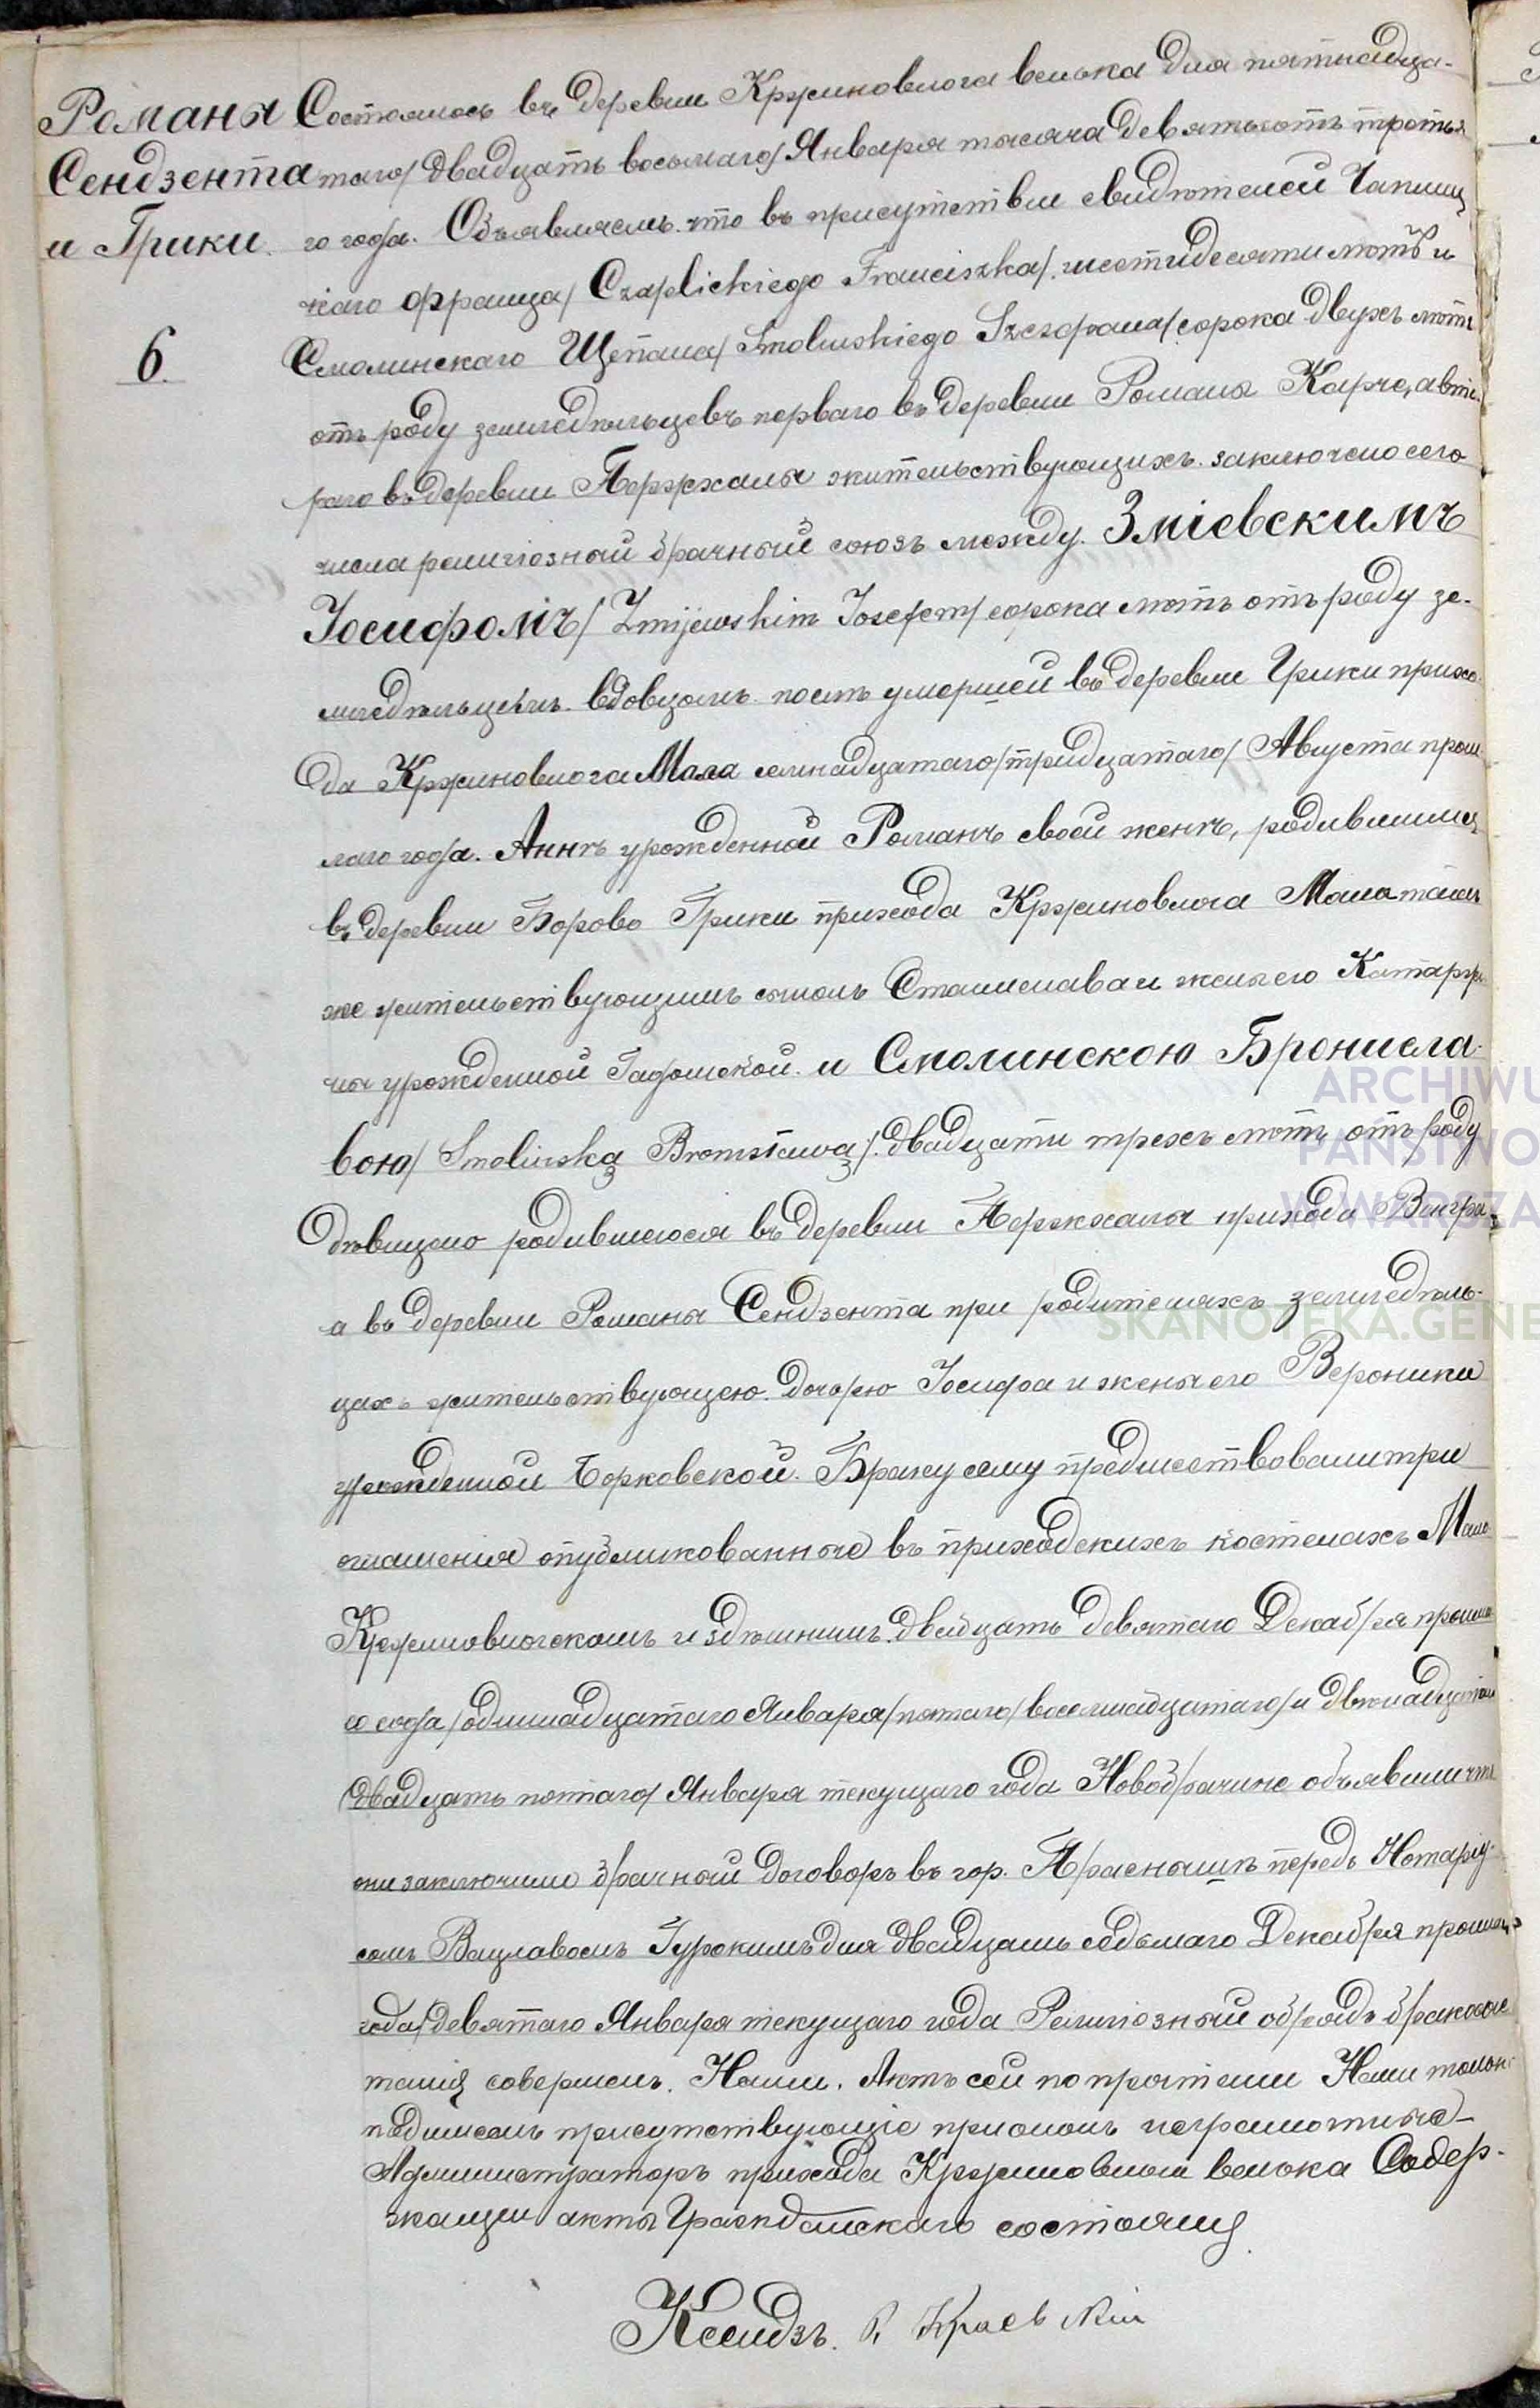 Романы
Сендзента
и Грики.
6.
Состоялось въ деревни Кржиновлога велька дня пятнадца-
таго/двадцать восьмаго/Января тысяча девятьсотъ третья
го года. Объявляемъ что въ присутствіи свидѣтелей Чаплиц
каго Франца/Czaplickiego Franciszka/шестидесяти лѣтъ и
Смолинскаго Щепана/Smolinskiego Szczepana/сорока двухъ лѣтъ
отъ роду земледѣльцевъ перваго въ деревни Романы Карче, а вто-
раго въ деревни Пержхалы жительствующихъ заключено сего
числа религіозный брачный союзъ между Зміевскимъ
Іосифомъ/Zmijewskim Josefem/сорока лѣтъ отъ роду зе-
мледѣльцемъ вдовцомъ послѣ умершей въ деревни Грики прихо-
да Кржиновлога Мала семнадцатаго/тридцатаго/Августа прош-
лаго года. Аннѣ урожденной Романъ своей женѣ, родившимся
въ деревни Борово Грики прихода Кржиновлога Мала тамъ
же жительствующимъ сыномъ Станислава и жены его Катаржи-
ны урожденной Гадомской и Смолинскою Брониела-
вою/Smolińską Bronisławą/двадцати трехъ лѣтъ отъ роду
дѣвицею родившеюся въ деревни Пержхалы прихода Венгра
а въ деревни Романы Сендзента при родителяхъ земледѣль-
цахъ жительствующею дочерю Іосифа и жены его Вероники
урожденной Борковской. Браку сему предшествовали три
оглашенія опубликованные въ приходскихъ костелахъ Мало
Кржиновлогскомъ и здѣшнимъ двадцать девятаго Декабря прошла
го года/одиннадцатаго Января/пятаго/восемнадцатаго/и двѣнадцатаго
/двадцать пятаго/Января текущаго года Новобрачине объявили что
они заключили брачный договоръ въ гор. Прасныщѣ передъ Нотаріу-
сомъ Вацлавомъ Гурскимъ дня двадцать седьмаго Декабря прошлаго
года/девятаго Января текущаго года Религіозный обрядъ бракосоче
танія совершенъ Нами. Актъ сей по прочтеніи Нами только
подписанъ присутствующіе при ономъ неграмотные-
Администраторъ прихода Кржиновлога велька Содер-
жащій акты Гражданскаго состоянія
Ксендзъ. Р. Краевскій
ARCHIWU
PAŃSTWO
W WARSZA
SKANOTEKA.GENE